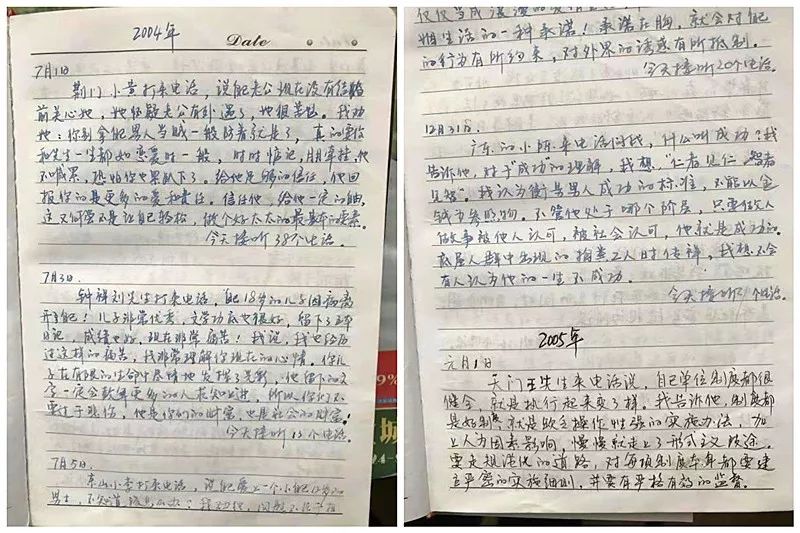 2004年
Date
7月1日
荆门小黄打来电话，说她老公现在没有信
前关心她，她怀疑老公有外遇了，她很苦恼。我劝
她：你别拿她男人当贼一般防着就是了，真的要信
和先生一生都如恋爱时一般，时时惦记，朋牵挂，他
不喊累，恐怕你也累趴下了。给他足够的信任，他回
报你的是更多的爱和责任。信任他，给他一定的自由，
这又何尝不是让自己轻松，做个好太太的最基本的要素。
今天接听38个电话。
7月3日
钟祥刘先生打来电话，自己18岁的儿子因病离
开自己！儿子非常优秀，文学功底也很好，留下了
日记，成绩也好，现在非常痛苦！我说，我也经历
过这样的痛苦，我非常理解你现在的心情。你儿
子在有限的生命中尽情地发挥了光彩，他留下的文
字一定会鼓舞更多的人求知上进，所以你们不
要过于悲伤，他是你们的财富，也是社会的财富。
今天接听15个电话
7月5日
京山小李打来电话，说她爱上一个小她12岁的
男士，不知道该怎么办？我劝她，
仅仅当成浪漫的
惧生活的一种承诺！承诺在胸，就会对自己
的行为有所约束，对外界的诱惑有所抵制。
今天接听20个电话。
12月31日
广东的小陈来电话问我，什么叫成功？我
告诉他，对于“成功”的理解，我想“仁者见仁，智者
见智”。我认为衡量男人成功的标准，不能以金
钱为参照物。不管他处于哪个阶层，只要他做人
做事被他人认可，被社会认可，他就是成功的。
底层人群中出现的掏粪工人时传祥，我想不会
有人认为他的一生不成功。
今天接听 个电话。
2005年
元月1日
天门王先生来电话说，自己单位制度都很
健全，就是执行起来变了样。我告诉他，制度都
是好制度，就是缺乏操作性强的实施办法，加
上人为因素影响，慢慢就走上了形式主义歧途。
要走规范化的道路，对每项制度本身都要建
立严密的实施细则，并要有严格有效的监督。
9%
城